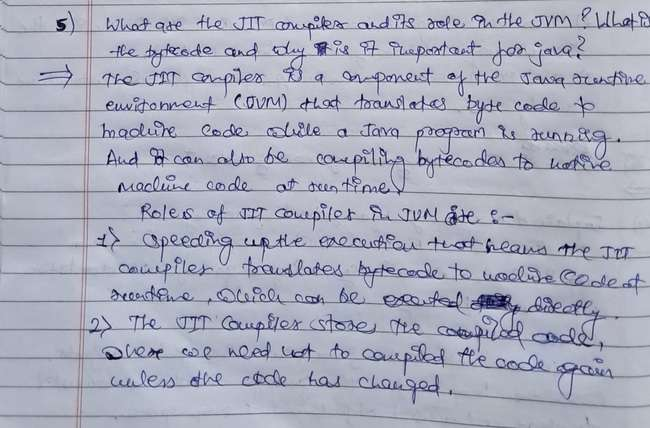 5) What are the JIT compiler and its role in the JVM? What is
the bytecode and why is it important for java?
⇒ The JIT compiler is a component of the Java runtime
environment (JVM) that translates byte code to
machine code while a Java program is running.
And it can also be compiling bytecodes to native
machine code at run time.
Roles of JIT compiler in JVM are :-
1) Speeding up the execution that means the JIT
compiler translates bytecode to machine code at
runtime, which can be executed directly.
2) The JIT Compiler stores the compiled code,
where we need not to compiled the code again
unless the code has changed.